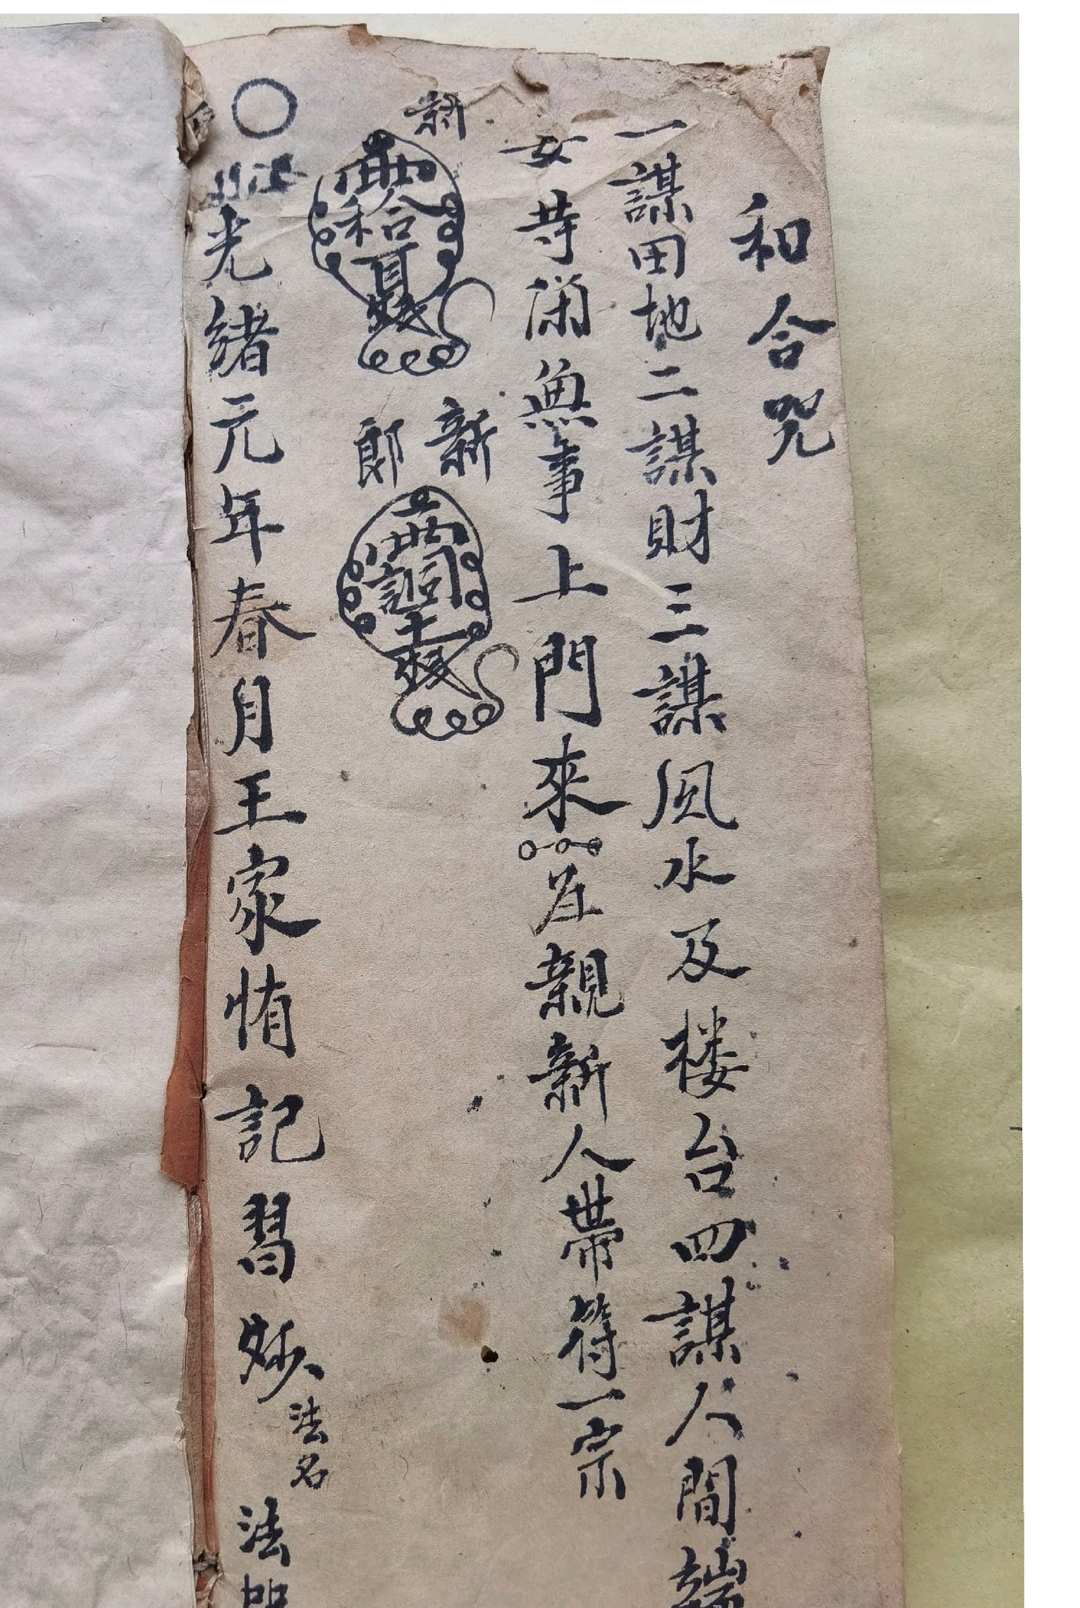 和合咒
一謀田地二謀財三謀風水及楼台四謀人間端
女時開無事上門來
親新人帶符一宗
新
新郎
光緒元年春月王家侑記習妙法名法